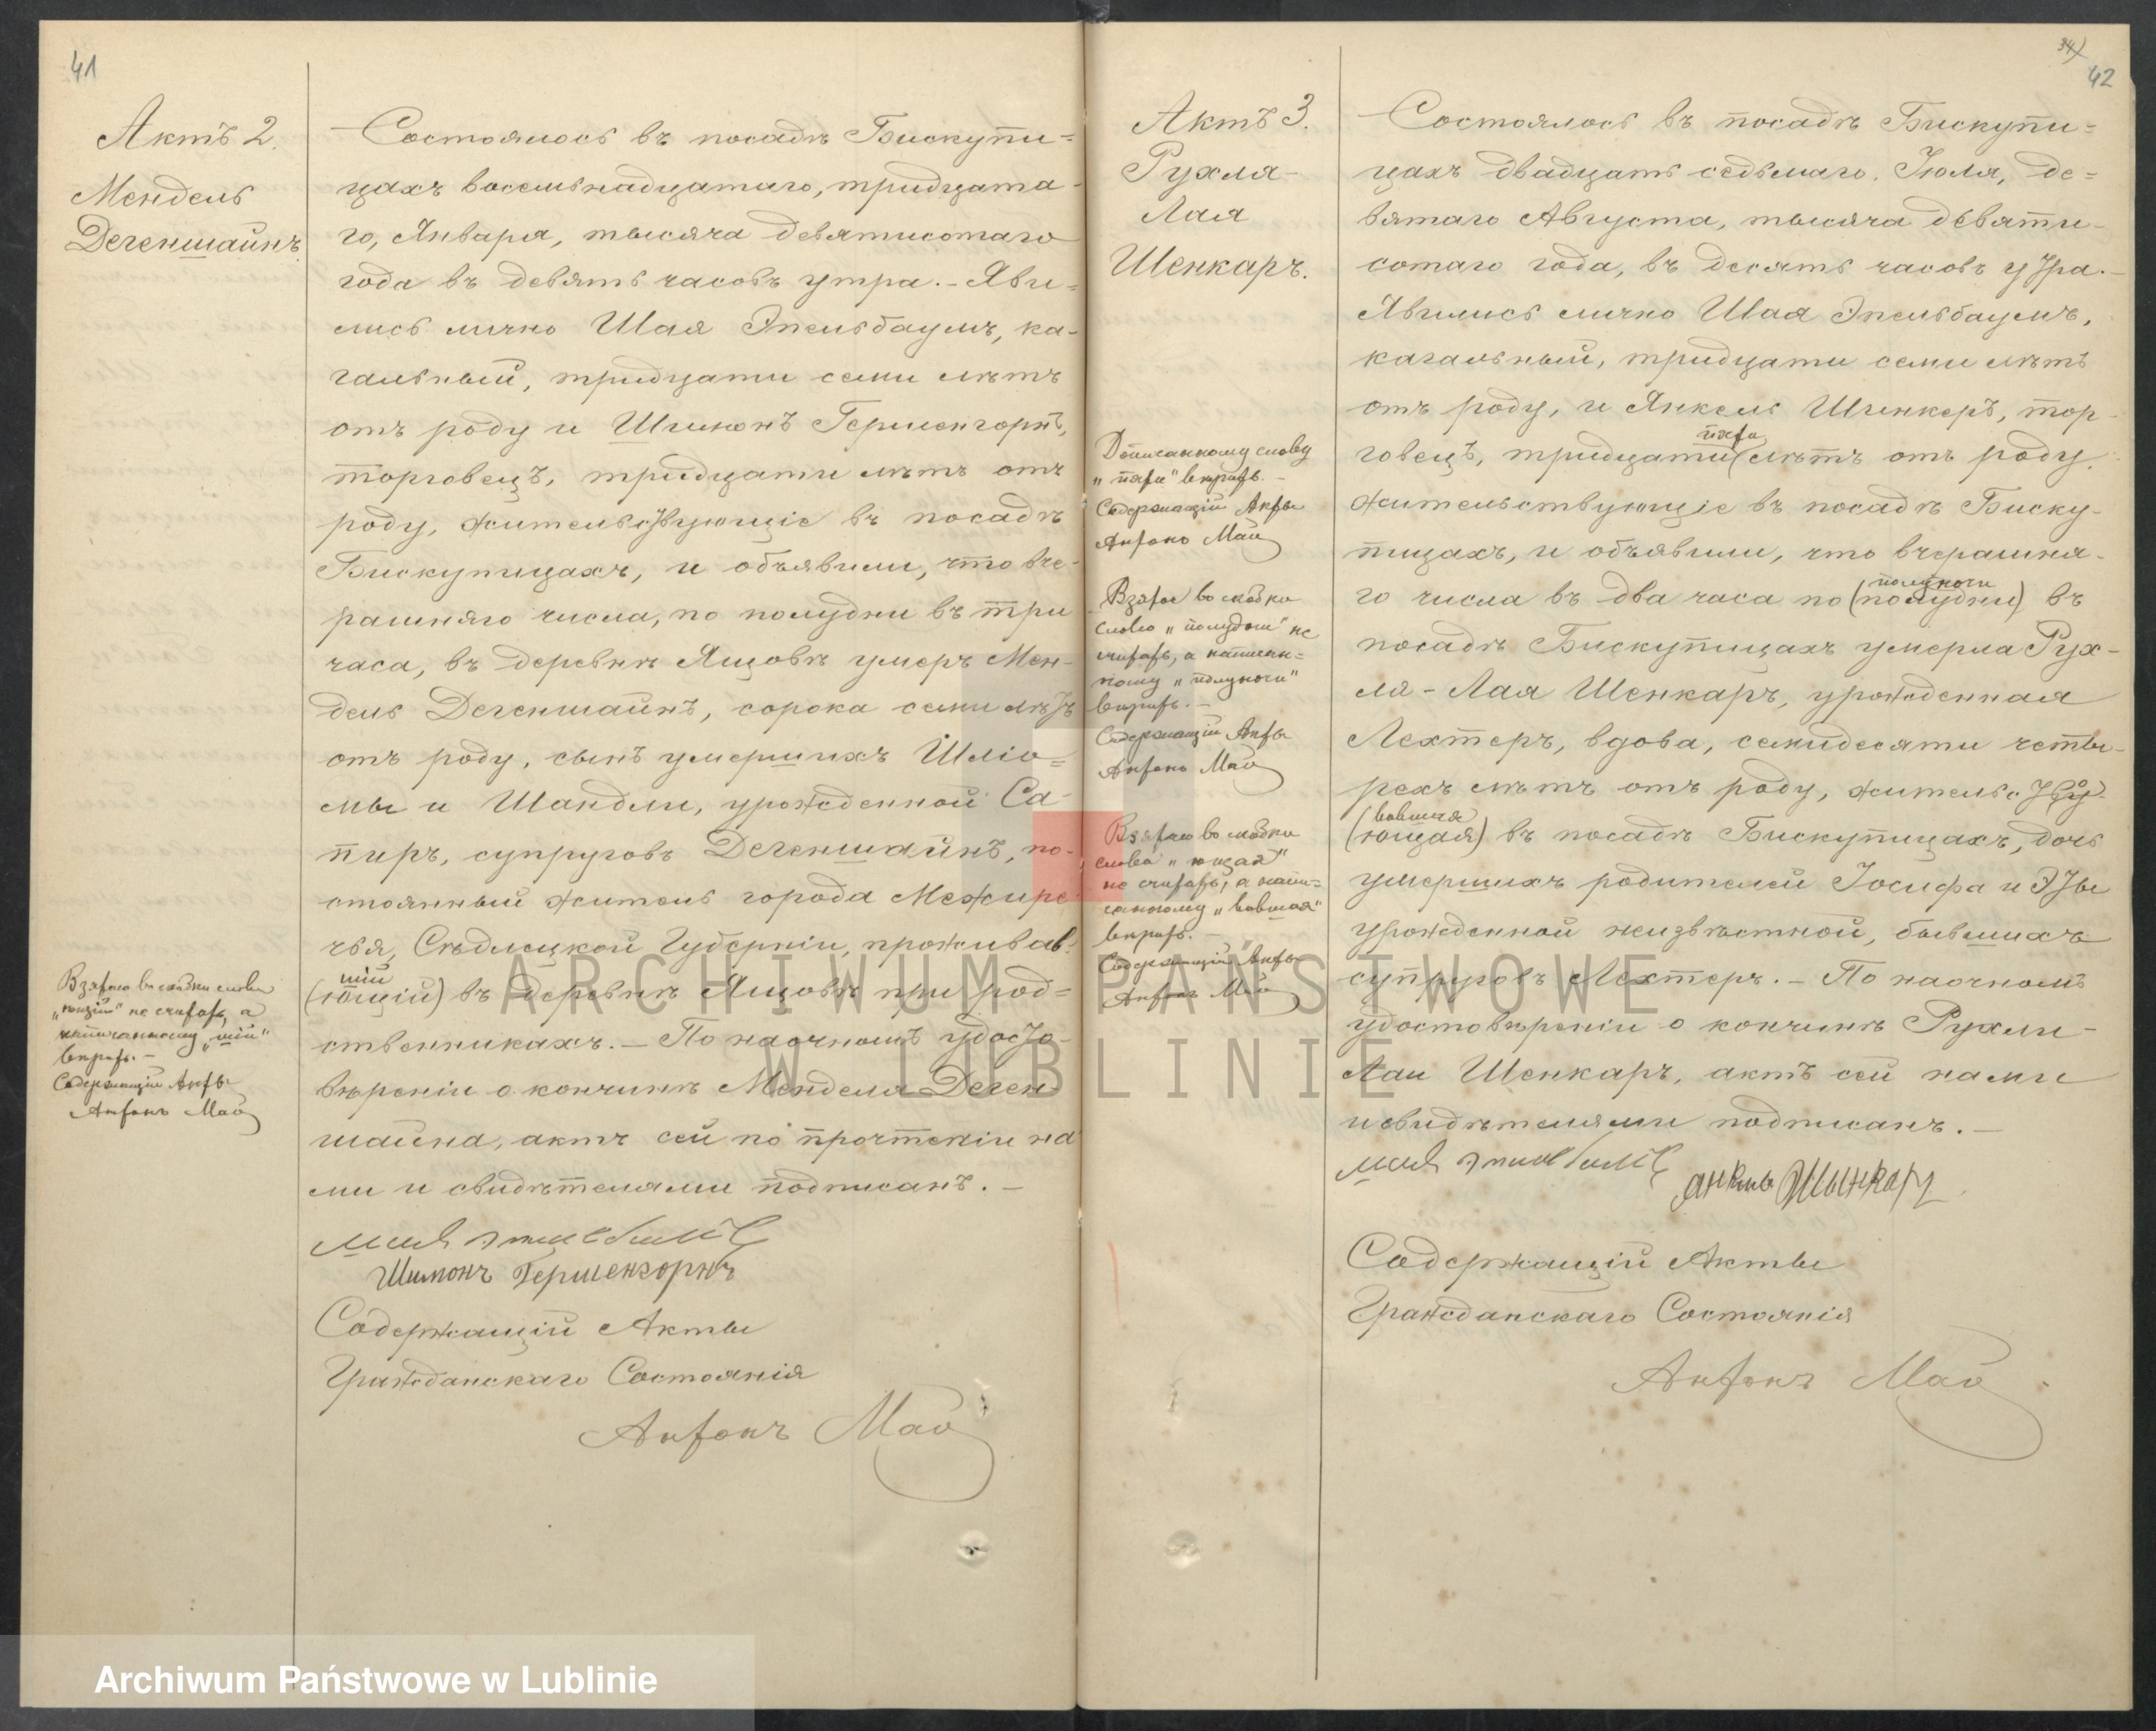 41
Актъ 2.
Мендель
Дегеншайнъ.
Состоялось въ посадѣ Бискупи=
цахъ восемьнадцатаго, тридцата-
го, Января, тысяча девятисотаго
года въ девять часовъ утра. – Яви=
лись лично Шая Эпельбаумъ, ка-
гальный, тридцати семи лѣтъ
отъ роду и Шимонъ Гершенгорнъ,
торговецъ, тридцати лѣтъ отъ
роду, жительствующіе въ посадѣ
Бискупицахъ, и объявили, что вче-
рашняго числа, по полудни въ три
часа, въ деревнѣ Ящовѣ умеръ Мен-
дель Дегеншайнъ, сорока семи лѣтъ
отъ роду, сынъ умершихъ Шліо=
мы и Шандли, урожденной Са-
пиръ, супруговъ Дегеншайнъ, по-
стоянный житель города Межирѣ
чья, Сѣдлецкой Губерніи, проживав-
шій
(ющій) въ деревнѣ Ящовѣ при род=
ственникахъ. – По наочномъ удосто-
вѣреніи о кончинѣ Менделя Деген-
шайна, актъ сей по прочтеніи на
ми и свидѣтелями подписанъ. –
Шимонъ Гершенгорнъ
Содержащій Акты
Гражданскаго Состоянія
Антонъ Май
Взятаго въ скобки слова
„ющій" не считать, а
написанному „шій"
вѣрить. –
Содержащій Акты
Антонъ Май
42
Актъ 3.
Рухля-
Лая
Шенкаръ.
Дописанному слову
„пяти" вѣрить. –
Содержащій Акты
Антонъ Май
Взятое во скобки
слово „полудни" не
считать, а написан=
ному „полуночи"
вѣрить. –
Содержащій Акты
Антонъ Май
Взятаго во скобки
слова „ющая"
не считать, а напи=
санному „вавшая"
вѣрить. –
Содержащій Акты
Антонъ Май
Состоялось въ посадѣ Бискупи=
цахъ двадцать седьмаго Іюля, де=
вятаго Августа, тысяча девяти-
сотаго года, въ десять часовъ утра. –
Явились лично Шая Эпельбаумъ,
кагальный, тридцати семи лѣтъ
отъ роду, и Янкель Шинкеръ, тор-
пяти
говецъ, тридцати (лѣтъ отъ роду,
жительствующіе въ посадѣ Биску-
пицахъ, и объявили, что вчерашня-
полуночи
го числа въ два часа по (полудни) въ
посадѣ Бискупицахъ умерла Рух-
ля-Лая Шенкаръ, урожденная
Лехтеръ, вдова, семидесяти четы-
рехъ лѣтъ отъ роду, жительству-
вавшая
(ющая) въ посадѣ Бискупицахъ, дочь
умершихъ родителей Іосифа и Эты
урожденной неизвѣстной, бывшихъ
супруговъ Лехтеръ. – По наочномъ
удостовѣреніи о кончинѣ Рухли-
Лаи Шенкаръ, актъ сей нами
и свидѣтелями подписанъ. –
Содержащій Акты
Гражданскаго Состоянія
Антонъ Май
ARCHIWUM PAŃSTWOWE
W LUBLINIE
Archiwum Państwowe w Lublinie